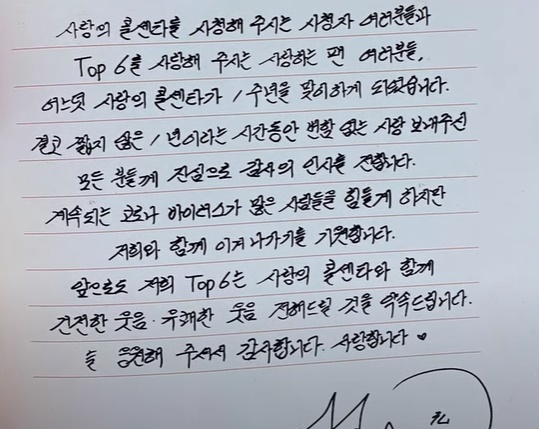 사랑의 콜센타를 시청해 주시는 시청자 여러분들과
Top 6를 사랑해 주시는 사랑하는 팬 여러분들,
어느덧 사랑의 콜센타가 1주년을 맞이하게 되었습니다.
결코 짧지 않은 1년이라는 시간동안 변함 없는 사랑 보내주신
모든 분들께 진심으로 감사의 인사를 전합니다.
계속되는 코로나 바이러스가 많은 사람들을 힘들게 하지만
저희와 함께 이겨나가기를 기원합니다.
앞으로도 저희 Top6는 사랑의 콜센타와 함께
건전한 웃음·유쾌한 웃음 전해드릴 것을 약속드립니다.
늘 응원해 주셔서 감사합니다. 사랑합니다 ♥